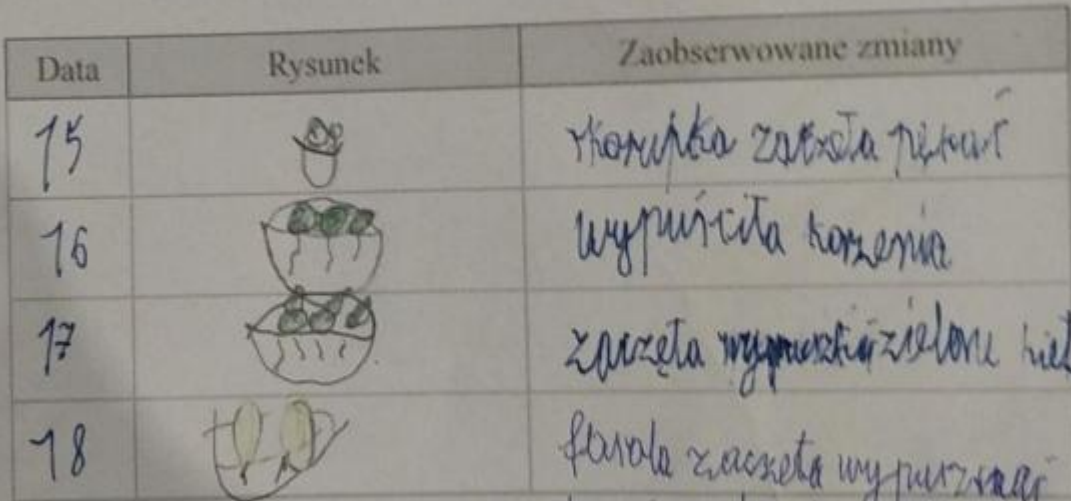 Data Rysunek Zaobserwowane zmiany
15 skorupka zaczęła pękać
16 wypuściła korzenia
17 zaczęła zielone
18 fasola zaczęła wypuszczać